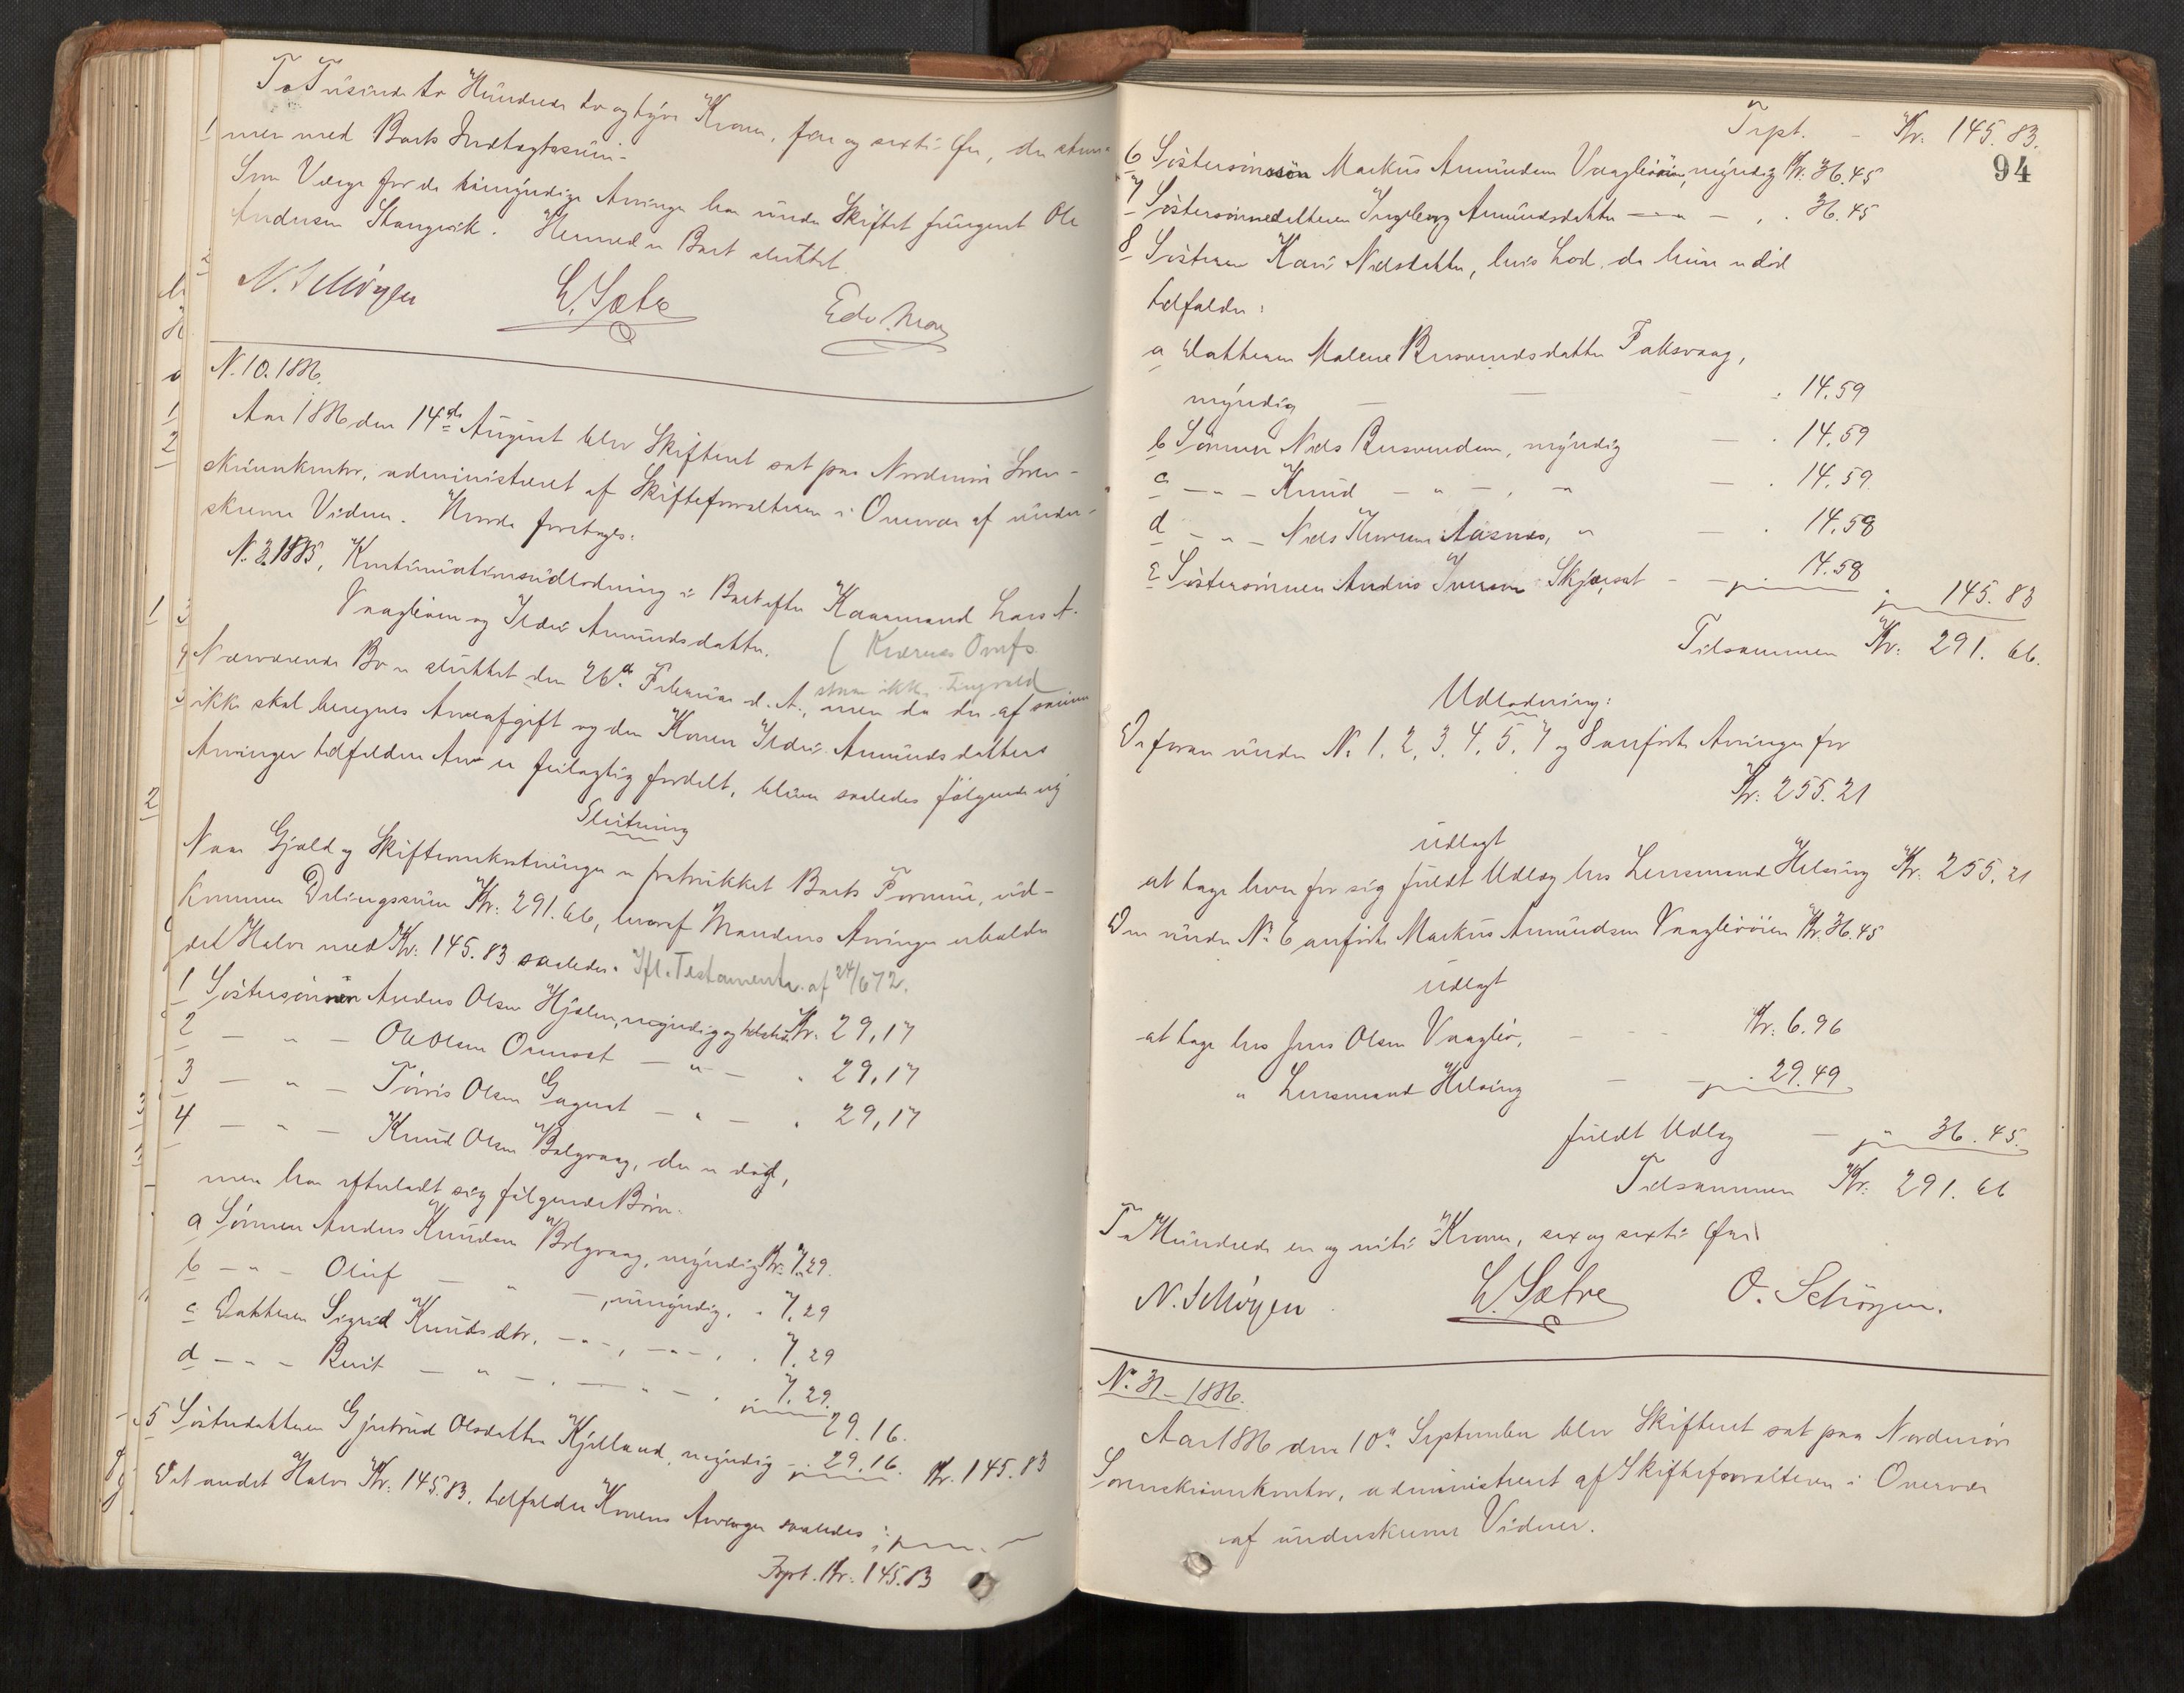 To Tusinde to Hundrede to og tyve Kroner, fem og sexti Øre, der stem-
mer med Boets Indtægtssum-
Som Værge for de umyndige Arvinger har under Skiftet fungeret Ole
Andersen Stangvik. Hermed er Boet sluttet.
N. Schøyen L. Sætre Edv.
N. 10. 1886.
Aar 1886 den 14de August blev Skifteret sat paa Nordmør Soren-
skriverkontor, administreret af Skifteforvalteren i Overvær af under-
skrevne Vidner. Hvorda foretoges:
N. 3. 1885, Kontinuationsudlodning i Boet efter Kaarmand Lars A.
Vaagbøen og Ildri Amundsdatter. (Kværnes
Nærværende Bo er sluttet den 26de Februar d. A., men da der af samme
ikke skal beregnes Arveafgift og den Konen Ildri Amundsdatters
Arvinger tilfaldne Arv er feilagtig fordelt, bliver saaledes følgende ny
Slutning
Naar Gjæld og Skifteomkostninger er fratrukket Boets Formue, ud-
kommer Delingssum Kr: 291.66, hvoraf Mandens Arvinger erholder
det Halve med Kr: 145.83 saaledes: Ifl. Testamente af 24/6 72.
1 Søstersønnen Anders Olsen Hjelen, myndig og Kr. 29,17
2 — " — Ole Olsen — " — . 29,17
3 — " — Tøris Olsen — " — . 29,17
4 — " — Knud Olsen Bolgvaag, der er død,
men har efterladt sig følgende Børn:
a Sønnen Anders Knudsen Bolgvaag, myndig Kr: 7.29.
b — " — Oluf — " —, umyndig, . 7.29
c Datteren Sigrid Knudsdtr. — " —, — " —, . 7.29
d — " — Berit — " —, — " —, . 7.29.
29.16.
5 Søsterdatteren Gjertrud Olsdatter Kjelland, myndig — . 29.16. Kr. 145.83
Det andet Halve Kr: 145.83. tilfalder Konens Arvinger saaledes:
Trpt. Kr: 145.83
Trpt. — Kr. 145.83.
94
6 Søstersønnen Markus Amundsen Vaagbøen, myndig Kr: 36.45
7 Søstersønnedatteren Ingeborg Amundsdatter — " — , . 36.45
8 Søsteren Kari Nilsdatter, hvis Lod, da hun er død
tilfalder:
a Datteren Malene Knsdatter Faksvaag,
myndig — — — . 14.59
b Sønnen Niels, myndig — . 14.59
c — " — Knud — " —, " — . 14.59.
d — " — Niels Aasnes, " — . 14.58
e Søstersønnen Anders Iversen Skjørsæt — . 14.58
. 145.83
Tilsammen Kr: 291.66.
Udlodning:
De foran under No 1. 2. 3. 4. 5. 7 og 8 anførte Arvinger for
Kr: 255.21
udlagt
at tage hver for sig fuldt Udlæg hos Lensmand Helsing Kr. 255.21
Den under No 6 anførte Markus Amundsen Vaagbøen Kr. 36.45
udlagt
at tage hos Jens Olsen Vaagbø, — — Kr: 6.96
" Lensmand Helsing — — . 29.49
fuldt Udlæg — 36.45.
Tilsammen Kr: 291.66
To Hundrede en og niti Kroner, sex og sexti Øre.
N. Schøyen L. Sætre O. Schøyen.
No. 11 — 1886.
Aar 1886 den 10de September blev Skifteret sat paa Nordmør
Sorenskriverkontor, administreret af Skifteforvalteren i Overvær
af underskrevne Vidner.